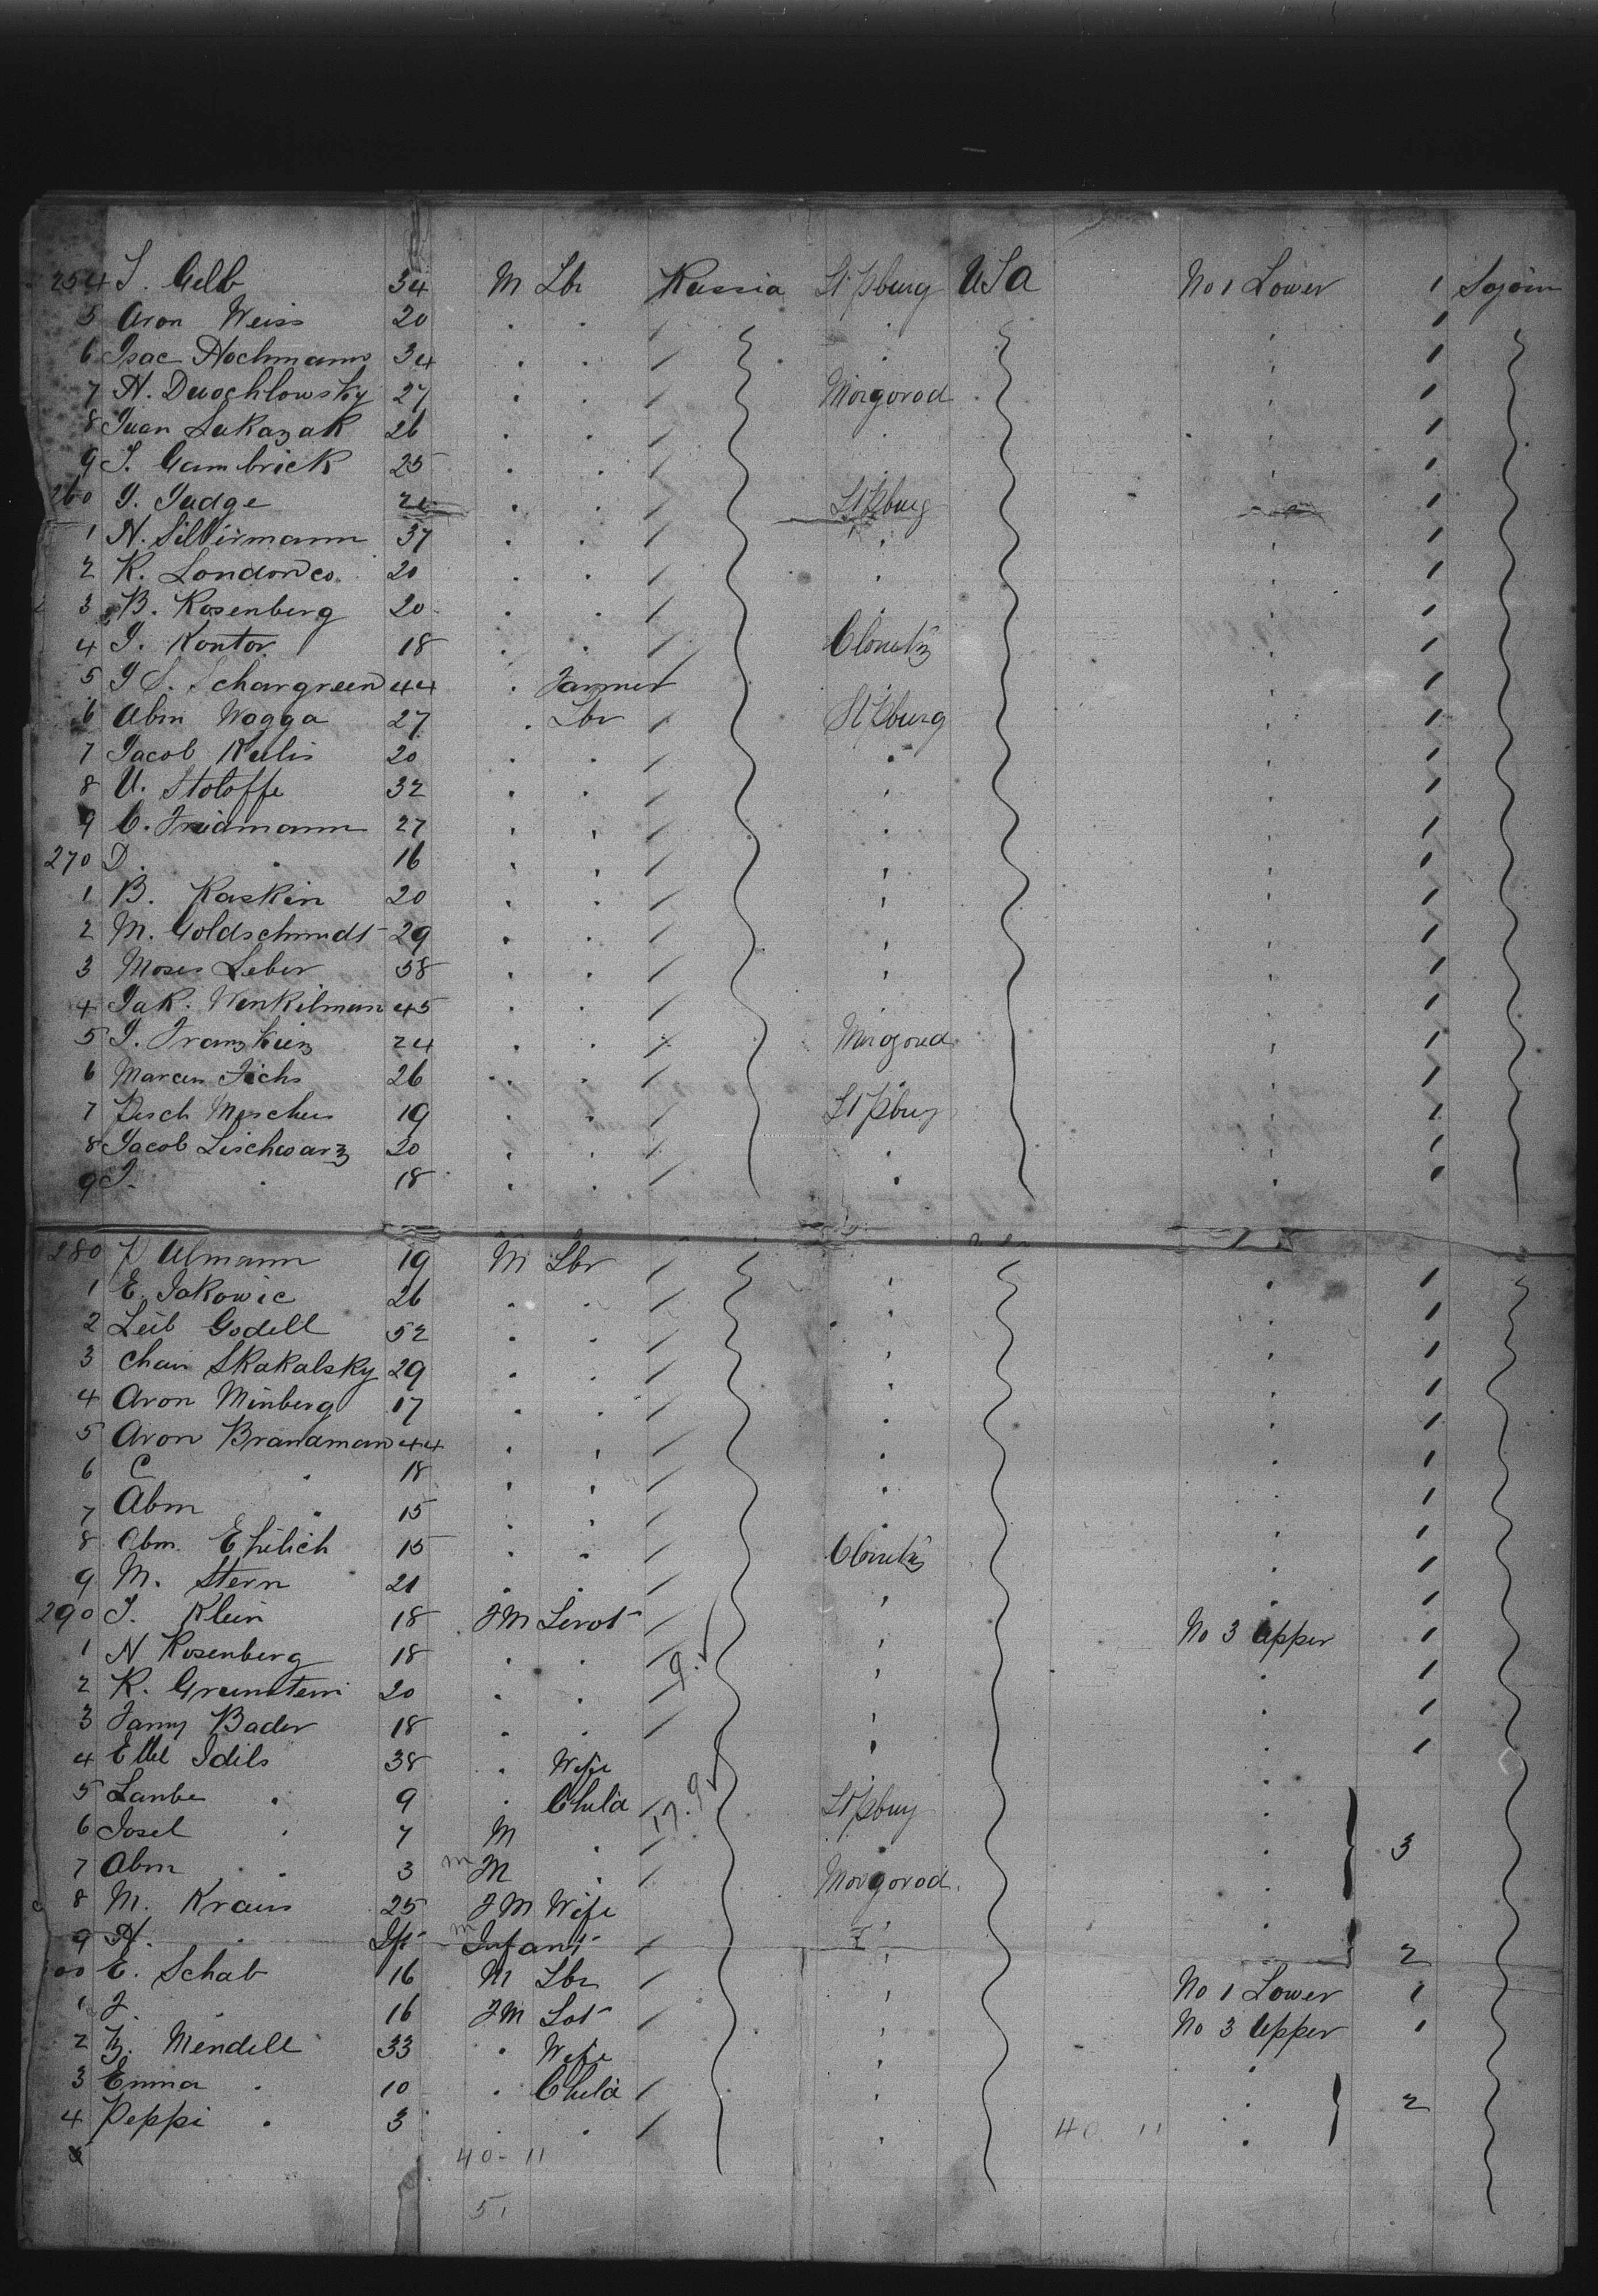 254 S. Gelb 34 M Lbr Russia St Pburg USA No 1 Lower 1 Sojoin
5 Aron Weiss 20 . . / . 1
6 Isac Hochmann 34 . . / . 1
7 H. Dwochlowsky 27 . . / Morgorod 1
8 Iwan Lukazak 26 . . / . 1
9 S. Gambrick 25 . . / . 1
260 I. Judge . . / St Pburg 1
1 N. Silbermann 37 . . / " 1
2 K. Londow 20 . . / . 1
3 B. Rosenberg 20 . . / . 1
4 I. Kontor 18 . . / 1
5 I S. Schargreen 44 . Farmer / . 1
6 Abm Wagga 27 . Lbr / St Pburg 1
7 Jacob Kulis 20 . . / " 1
8 U. Stoloffe 32 . . / " 1
9 C. Friedmann 27 . . / . 1
270 D. " 16 . . / " 1
1 B. Raskin 20 . . / " 1
2 M. Goldschmidt 29 . . / " 1
3 Moses Leber 38 . . / " 1
4 Jak. Winkilman 45 . . / . 1
5 I. 24 . . / Morgorod 1
6 Marcus Fichs 26 . . / . 1
7 Pesch 19 . . / St Pburg 1
8 Jacob Lischwarz 20 . . / . 1
9 I. " 18 . . / . 1
280 Ulmann 19 M Lbr / " " 1
1 E. Jakowic 26 . . / " 1
2 Leib Godell 52 . . / " 1
3 Chaim Skakalsky 29 . . / " 1
4 Aron Minberg 17 . . / . 1
5 Aron Brandman 44 . . / . 1
6 C " 18 . . / . 1
7 Abm " 15 . . / . 1
8 Abm. Ehrlich 15 . . / 1
9 M. Stern 21 . . / " 1
290 S. Klein 18 FM Servt / No 3 Upper 1
1 N Rosenberg 18 . . / " 1
2 K. Grunstein 20 . . / " 1
3 Fanny Bader 18 . . / " 1
4 Ettel Idils 38 . Wife "
5 Laube " 9 . Child / St Pburg
6 Josel " 7 M . / . 3
7 Abm " 3 M . / Morgorod
8 M. Kraus 25 FM Wife
9 H. " Ift Infant / " 2
300 E. Schab 16 M Lbr / " No 1 Lower 1
1 F. " 16 FM Sot / " No 3 Upper 1
2 Mendell 33 " Wife "
3 Emma " 10 . Child / " 2
4 Peppi " 3 . . / "
40-11 40 11
51